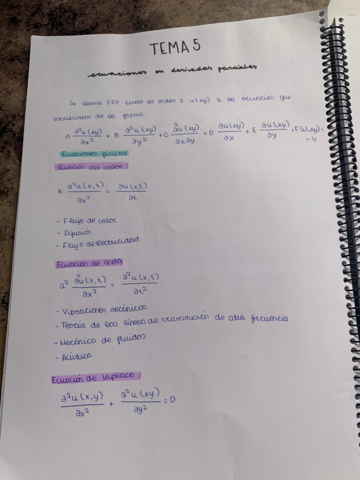 TEMA 5
ecuaciones en derivadas parciales
Se llama EDP lineal de orden 2 u(xy) a la ecuación que
escribimos de la forma:
A ∂²u(xy)/∂x² + B ∂²u(xy)/∂y² + C ∂²u(xy)/∂x∂y + D ∂u(xy)/∂x + E ∂u(xy)/∂y + F u(xy) =
Ecuaciones
Ecuación del calor
K ∂²u(x,t)/∂x² = ∂u(x,t)/∂t
- Flujo de calor
- Difusión
- Flujo de electricidad
Ecuación de onda
a² ∂²u(x,t)/∂x² = ∂²u(x,t)/∂t²
- Vibraciones mecánicas
- Teoría de las líneas de transmisión de alta frecuencia
- Mecánica de fluidos
- Acústica
Ecuación de Laplace
∂²u(x,y)/∂x² + ∂²u(xy)/∂y² = 0